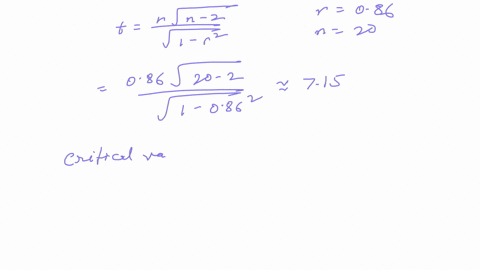 t = r√(n-2) / √(1-r²)
r = 0.86
n = 20
= 0.86√(20-2) / √(1-0.86²) ≈ 7.15
Critical va